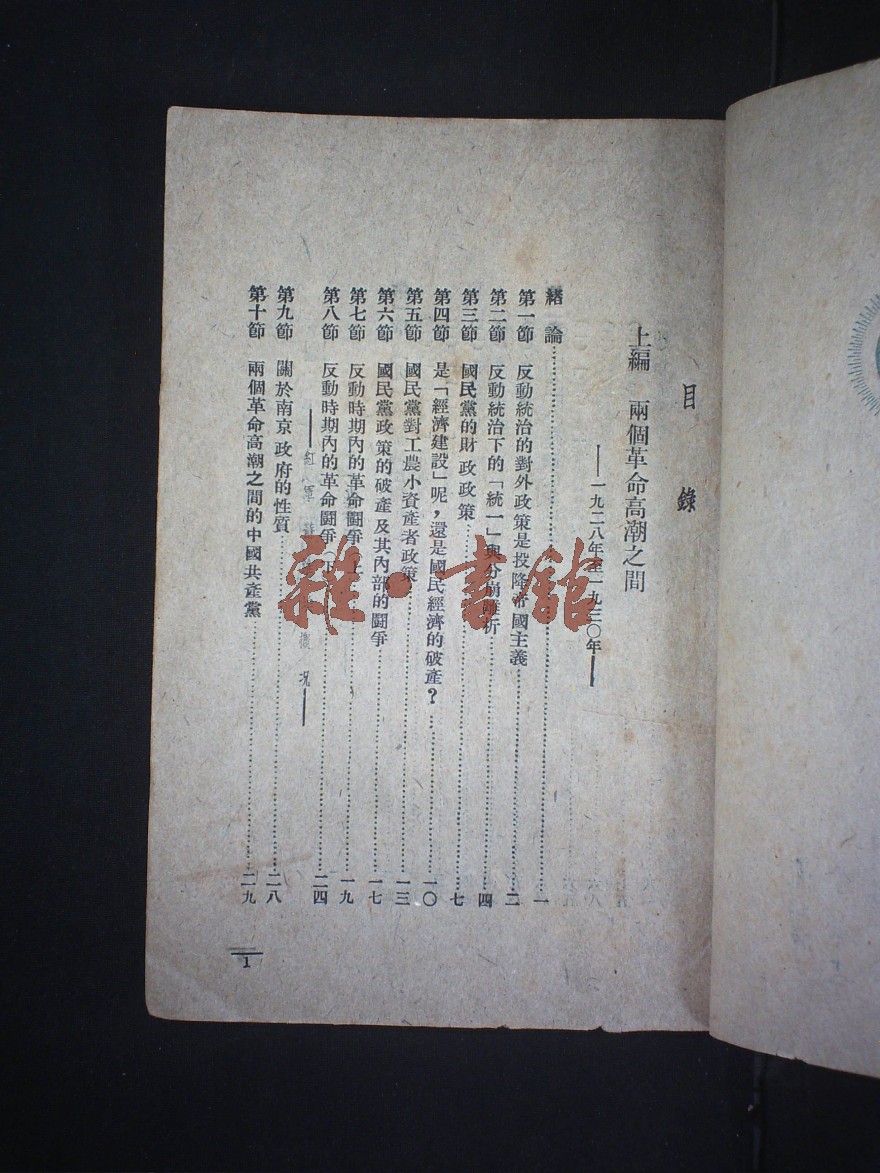 目錄
上編 兩個革命高潮之間
——一九二八年至一九三〇年——
緒論……一
第一節 反動統治的對外政策是投降帝國主義……二
第二節 反動統治下的「統一」與分崩離析……四
第三節 國民黨的財政政策……七
第四節 是「經濟建設」呢，還是國民經濟的破產？……一〇
第五節 國民黨對工農小資產者政策……一三
第六節 國民黨政策的破產及其內部的鬪爭……一七
第七節 反動時期內的革命鬪爭（上）……一九
第八節 反動時期內的革命鬪爭（下）……二四
——紅軍 概況——
第九節 關於南京政府的性質……二八
第十節 兩個革命高潮之間的中國共產黨……二九
1
雜·書館